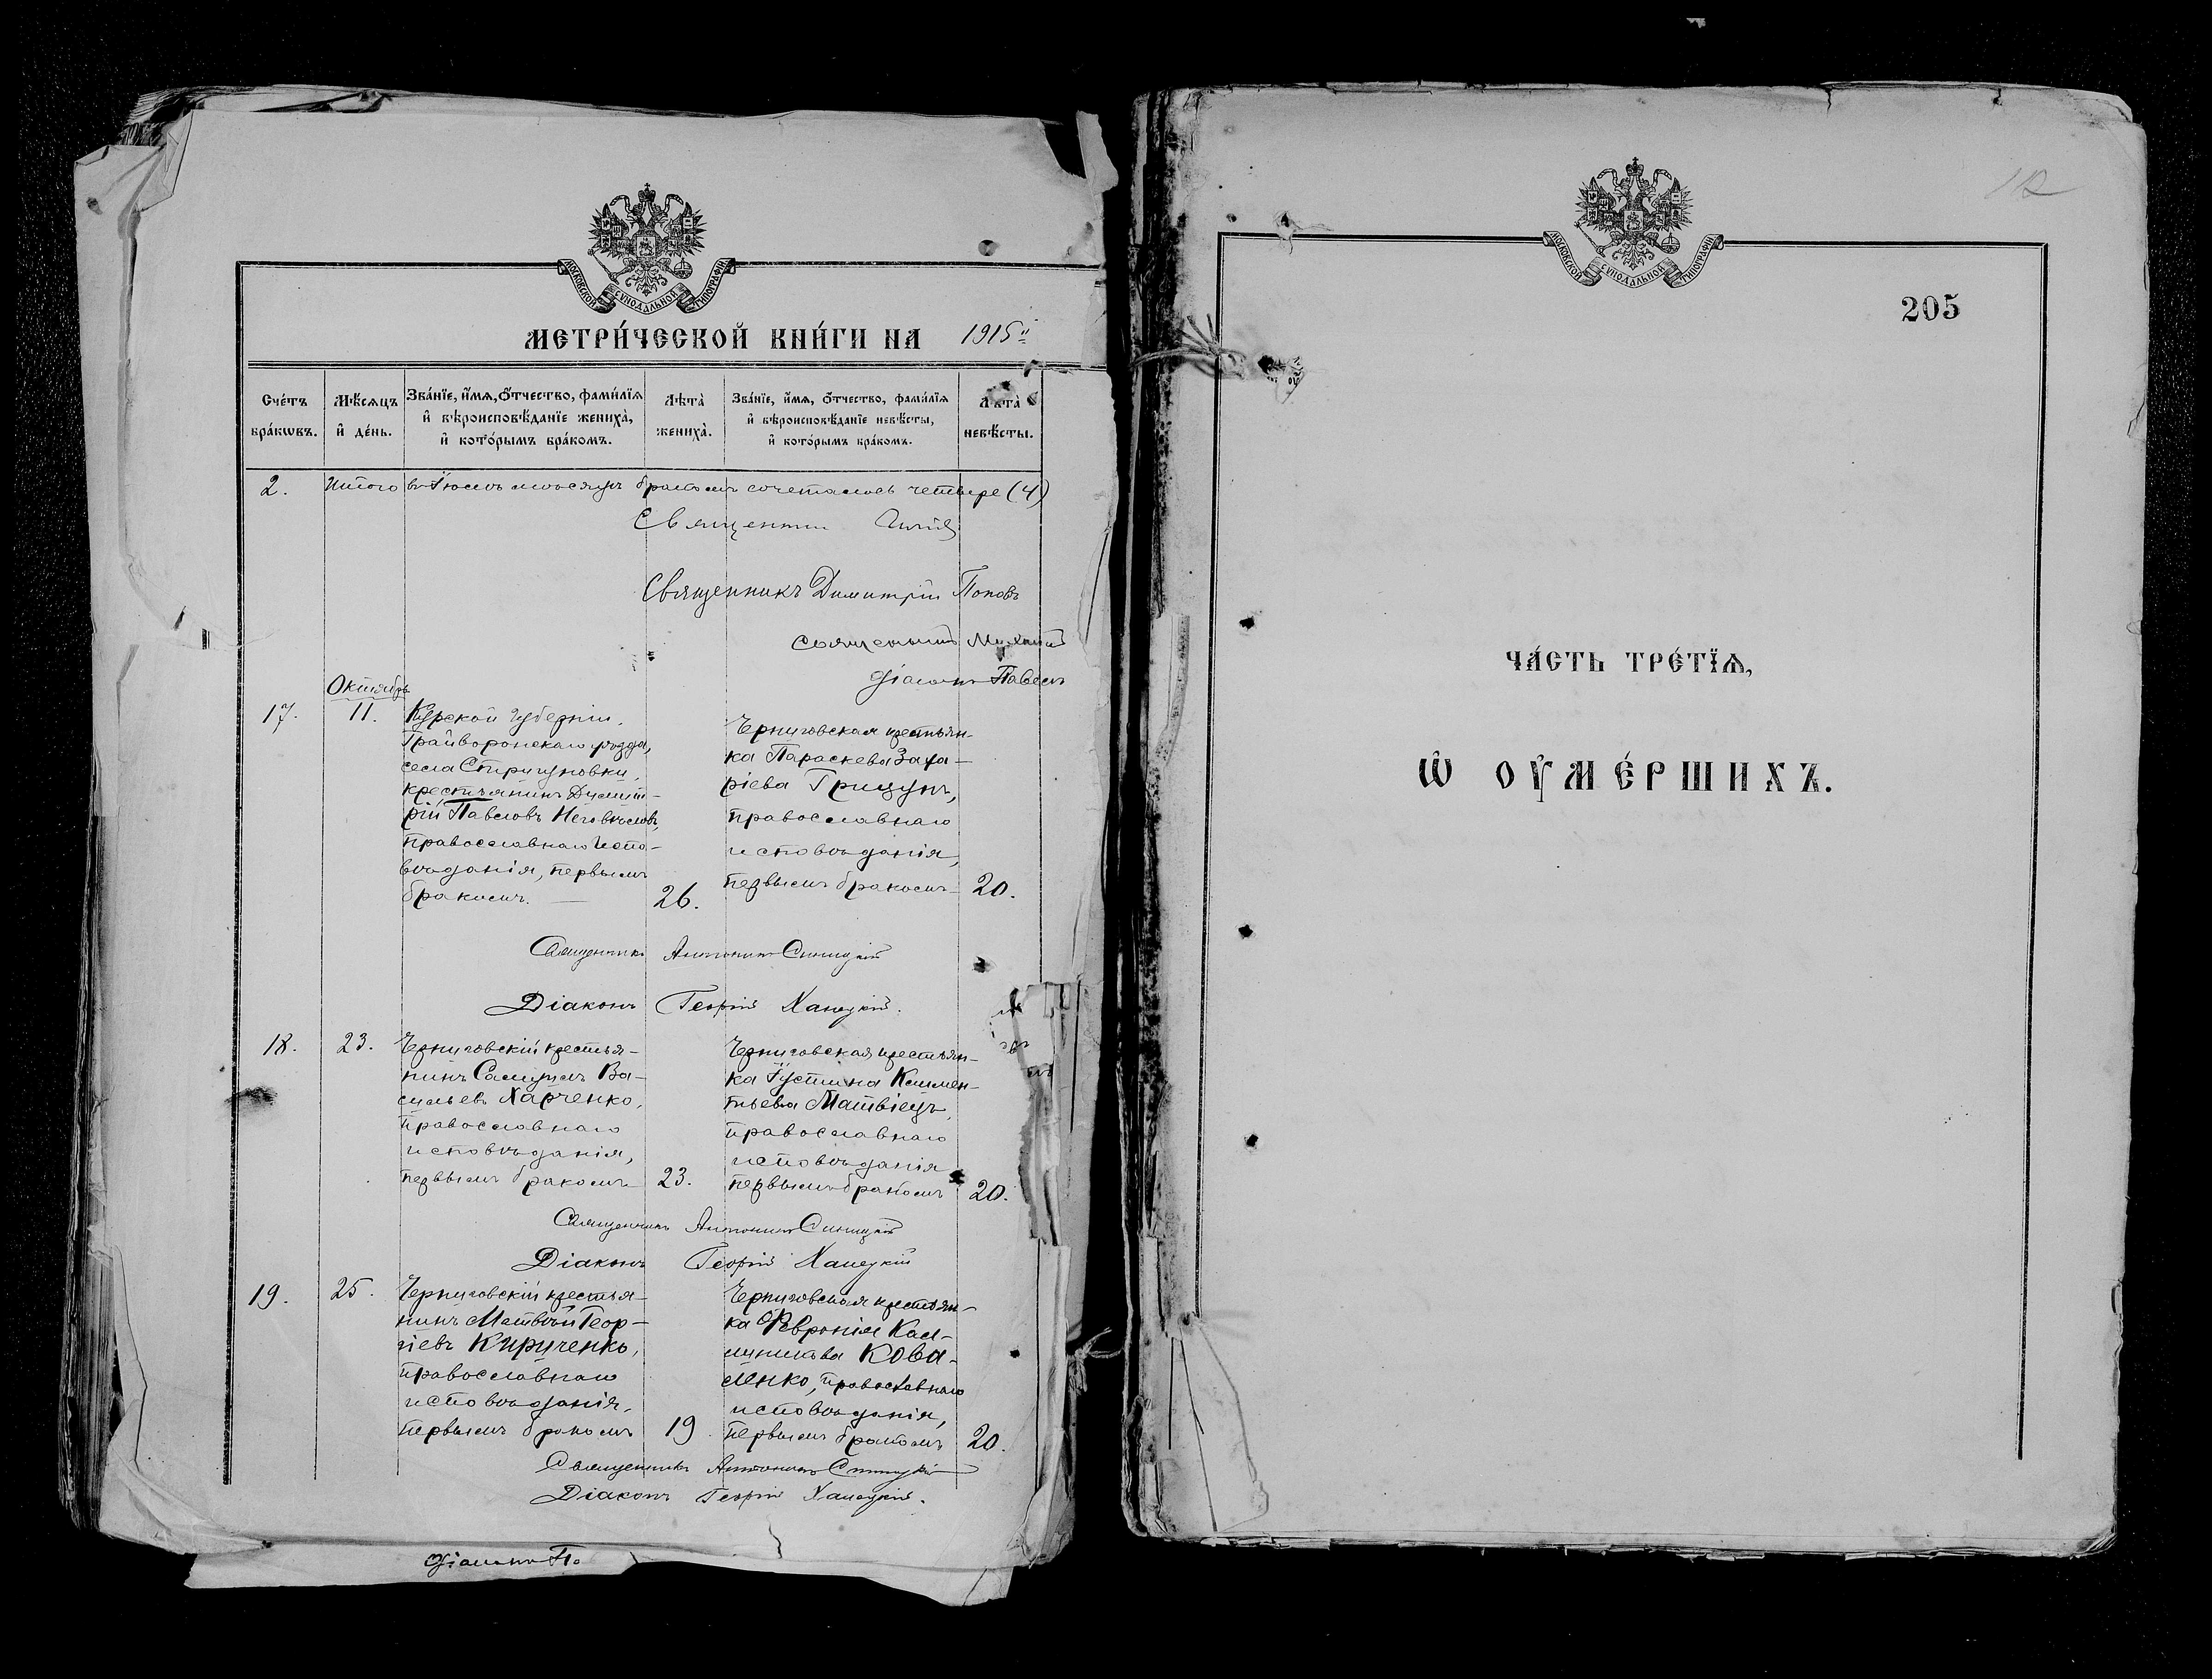 МОСКОВСКОЙ СѴНОДАЛЬНОЙ ТИПОГРАФІИ
МЕТРИ́ЧЕСКОЙ КНИ́ГИ НА 1915
Сче́тъ бра́кѡвъ.
Мѣ́сяцъ и҆ де́нь.
Зва́нїе, и҆́мѧ, ѻ҆́тчество, фами́лїѧ
и҆ вѣроисповѣ́данїе жениха̀,
и҆ кото́рымъ бра́комъ.
Лѣта̀ жениха̀.
Зва́нїе, и҆́мѧ, ѻ҆́тчество, фами́лїѧ
и҆ вѣроисповѣ́данїе невѣ́сты,
и҆ кото́рымъ бра́комъ.
Лѣта̀ невѣ́сты.
2. Итого въ Іюлѣ мѣсяцѣ бракомъ сочеталось четыре (4)
Священникъ Димитрій Поповъ
священникъ Михаилъ
Діаконъ Павелъ
Октябрь
17. 11.
Курской губерніи,
Грайворонскаго уѣзда,
села Стригуновки,
крестьянинъ Димит-
рій Павловъ
православнаго испо-
вѣданія, первымъ
бракомъ. 26.
Черниговская крестьян-
ка Параскева Заха-
ріева Грицунъ,
православнаго
исповѣданія,
первымъ бракомъ 20.
Священникъ Антонинъ Синицкій
Діаконъ Георгій Ханецкій.
18. 23.
Черниговскій крестья-
нинъ Самуилъ Ва-
сильевъ Харченко,
православнаго
исповѣданія,
первымъ бракомъ 23.
Черниговская крестьян-
ка Іустина Климен-
тьева Матвіецъ,
православнаго
исповѣданія
первымъ бракомъ 20.
Священникъ Антонинъ Синицкій
Діаконъ Георгій Ханецкій
19. 25.
Черниговскій крестья-
нинъ Матвѣй Геор-
гіевъ Кириченко,
православнаго
исповѣданія,
первымъ бракомъ 19
Черниговская крестьян-
ка Февронія Кал-
линикова Кова-
ленко, православнаго
исповѣданія,
первымъ бракомъ 20.
Священникъ Антонинъ Синицкій
Діаконъ Георгій Ханецкій.
Діаконъ Па
МОСКОВСКОЙ СѴНОДАЛЬНОЙ ТИПОГРАФІИ
12
205
ЧА́СТЬ ТРЕ́ТЇѦ,
Ѡ҆ ОУ҆МЕ́РШИХЪ.